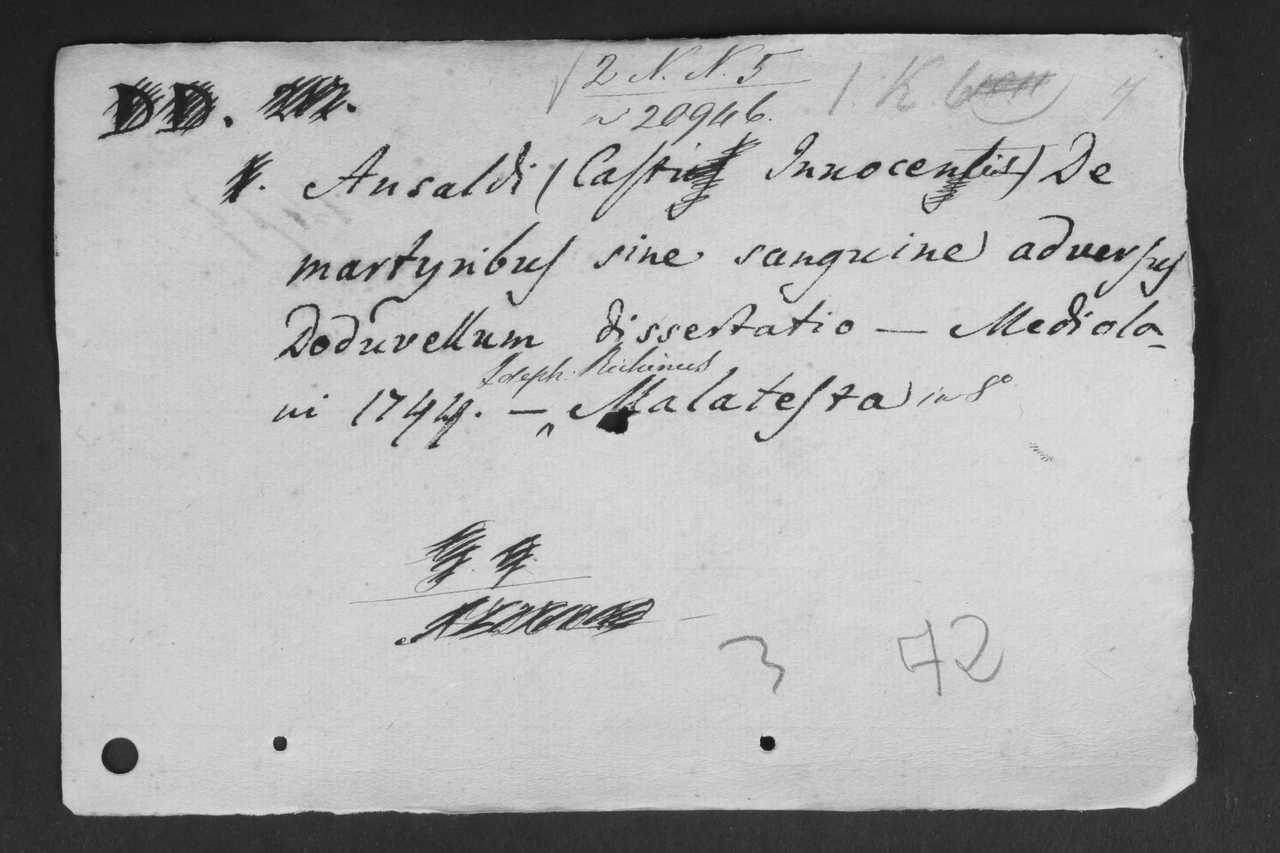 2 N. N. 5
20946.
DD.
1. K. 6
Ansaldi (Casti Innocentis) De
martyribus sine sanguine adversus
Doduvellum dissertatio — Mediola-
ni 1744. — Joseph. Richinus Malatesta in 8°
3 72